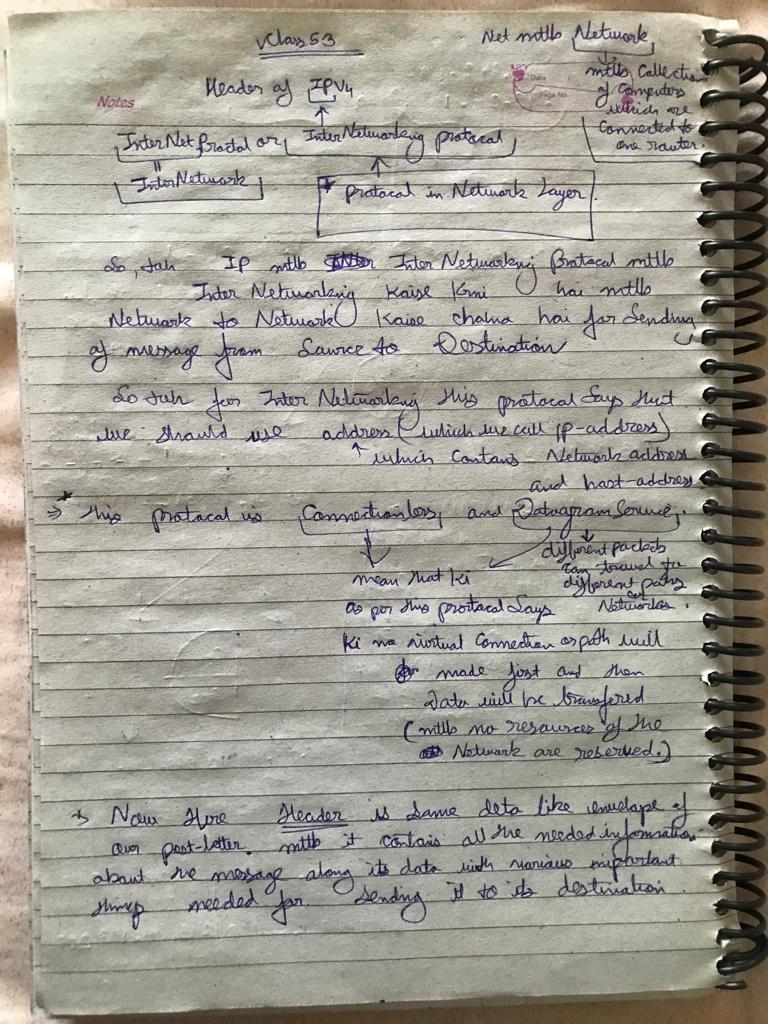 vClass 53
Net mtlb Network
mtlb Collection
of Computers
which are
Connected to
one router.
Notes
Date
Page No.
Header of IPV4
InterNet Protocal or InterNetworking protocal
InterNetwork
* protocal in Network Layer
So, tuh IP mtlb Inter Networking Protocal mtlb
Inter Networking Kaise Krni hai mtlb
Network to Network Kaise chalna hai for Sending
of message from Source to Destination
So tuh for Inter Networking this protocal Says that
we should use address (which we call IP-address)
which contans Network address
and host-address
* This protocal is Connectionless and Datagram Service.
different packets
can travel to
different paths
Networks.
mean that ki
as per this protocal Says
Ki no virtual Connection or path will
made first and then
Data will be transfered
(mtlb no resources of the
Network are reserved.)
Now Here Header is Same data like envelope of
our post-letter. mtlb it contains all the needed information
about the message along its data with various important
things needed for Sending it to its destination.